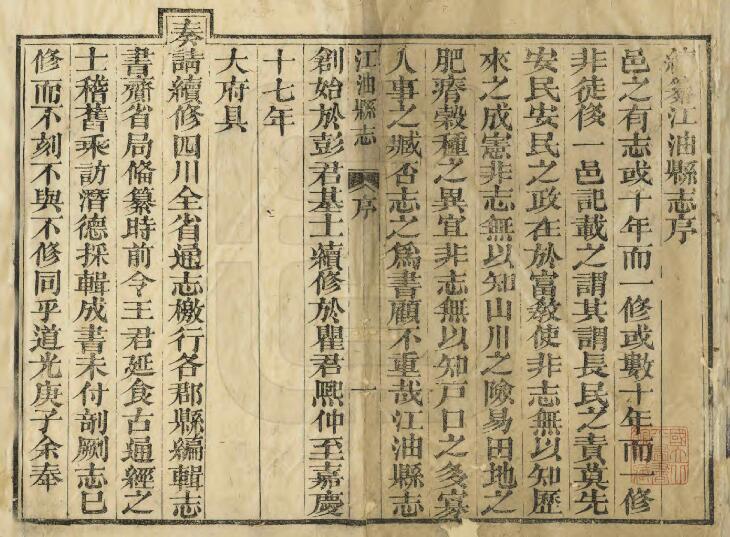 續纂江油縣志序
邑之有志或十年而一修或數十年而一修
非徒俻一邑記載之謂其謂長民之責莫先
安民安民之政在於富教使非志無以知歷
來之成憲非志無以知山川之險易田地之
肥瘠穀種之異宜非志無以知戸口之多寡
人事之臧否志之爲書顧不重哉江油縣志
江油縣志 序 一
創始於彭君基士續修於瞿君熙仲至嘉慶
十七年
大府具
奏請續修四川全省通志檄行各郡縣編輯志
書齎省局俻纂時前令王君延食古通經之
士稽舊乘訪濟德採輯成書未付剞劂志已
修而不刻不與不修同乎道光庚子余奉